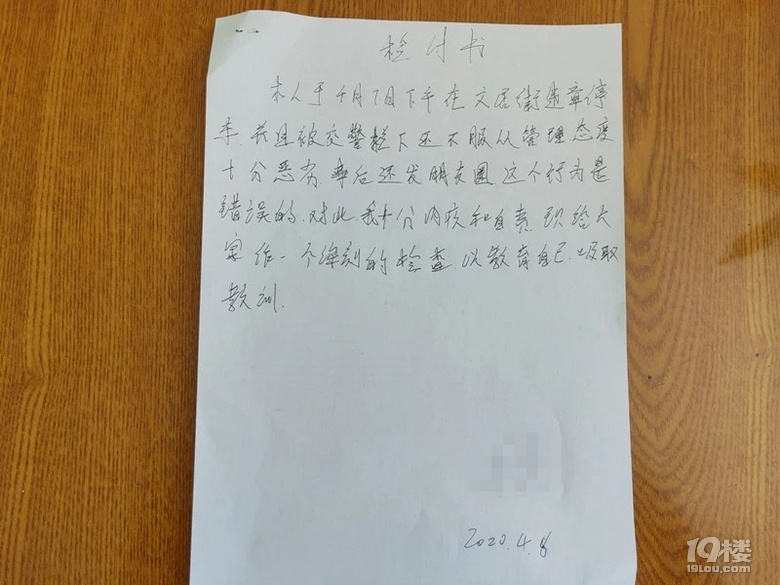 检付书
本人于4月7日下午在文居街违章停
车.并且被交警拦下还不服从管理态度
十分恶劣.事后还发朋友圈.这个行为是
错误的.对此.我十分内疚和自责.现给大
家作一个深刻的检查.以教育自己.吸取
教训.
2020.4.8
19楼
19lou.com